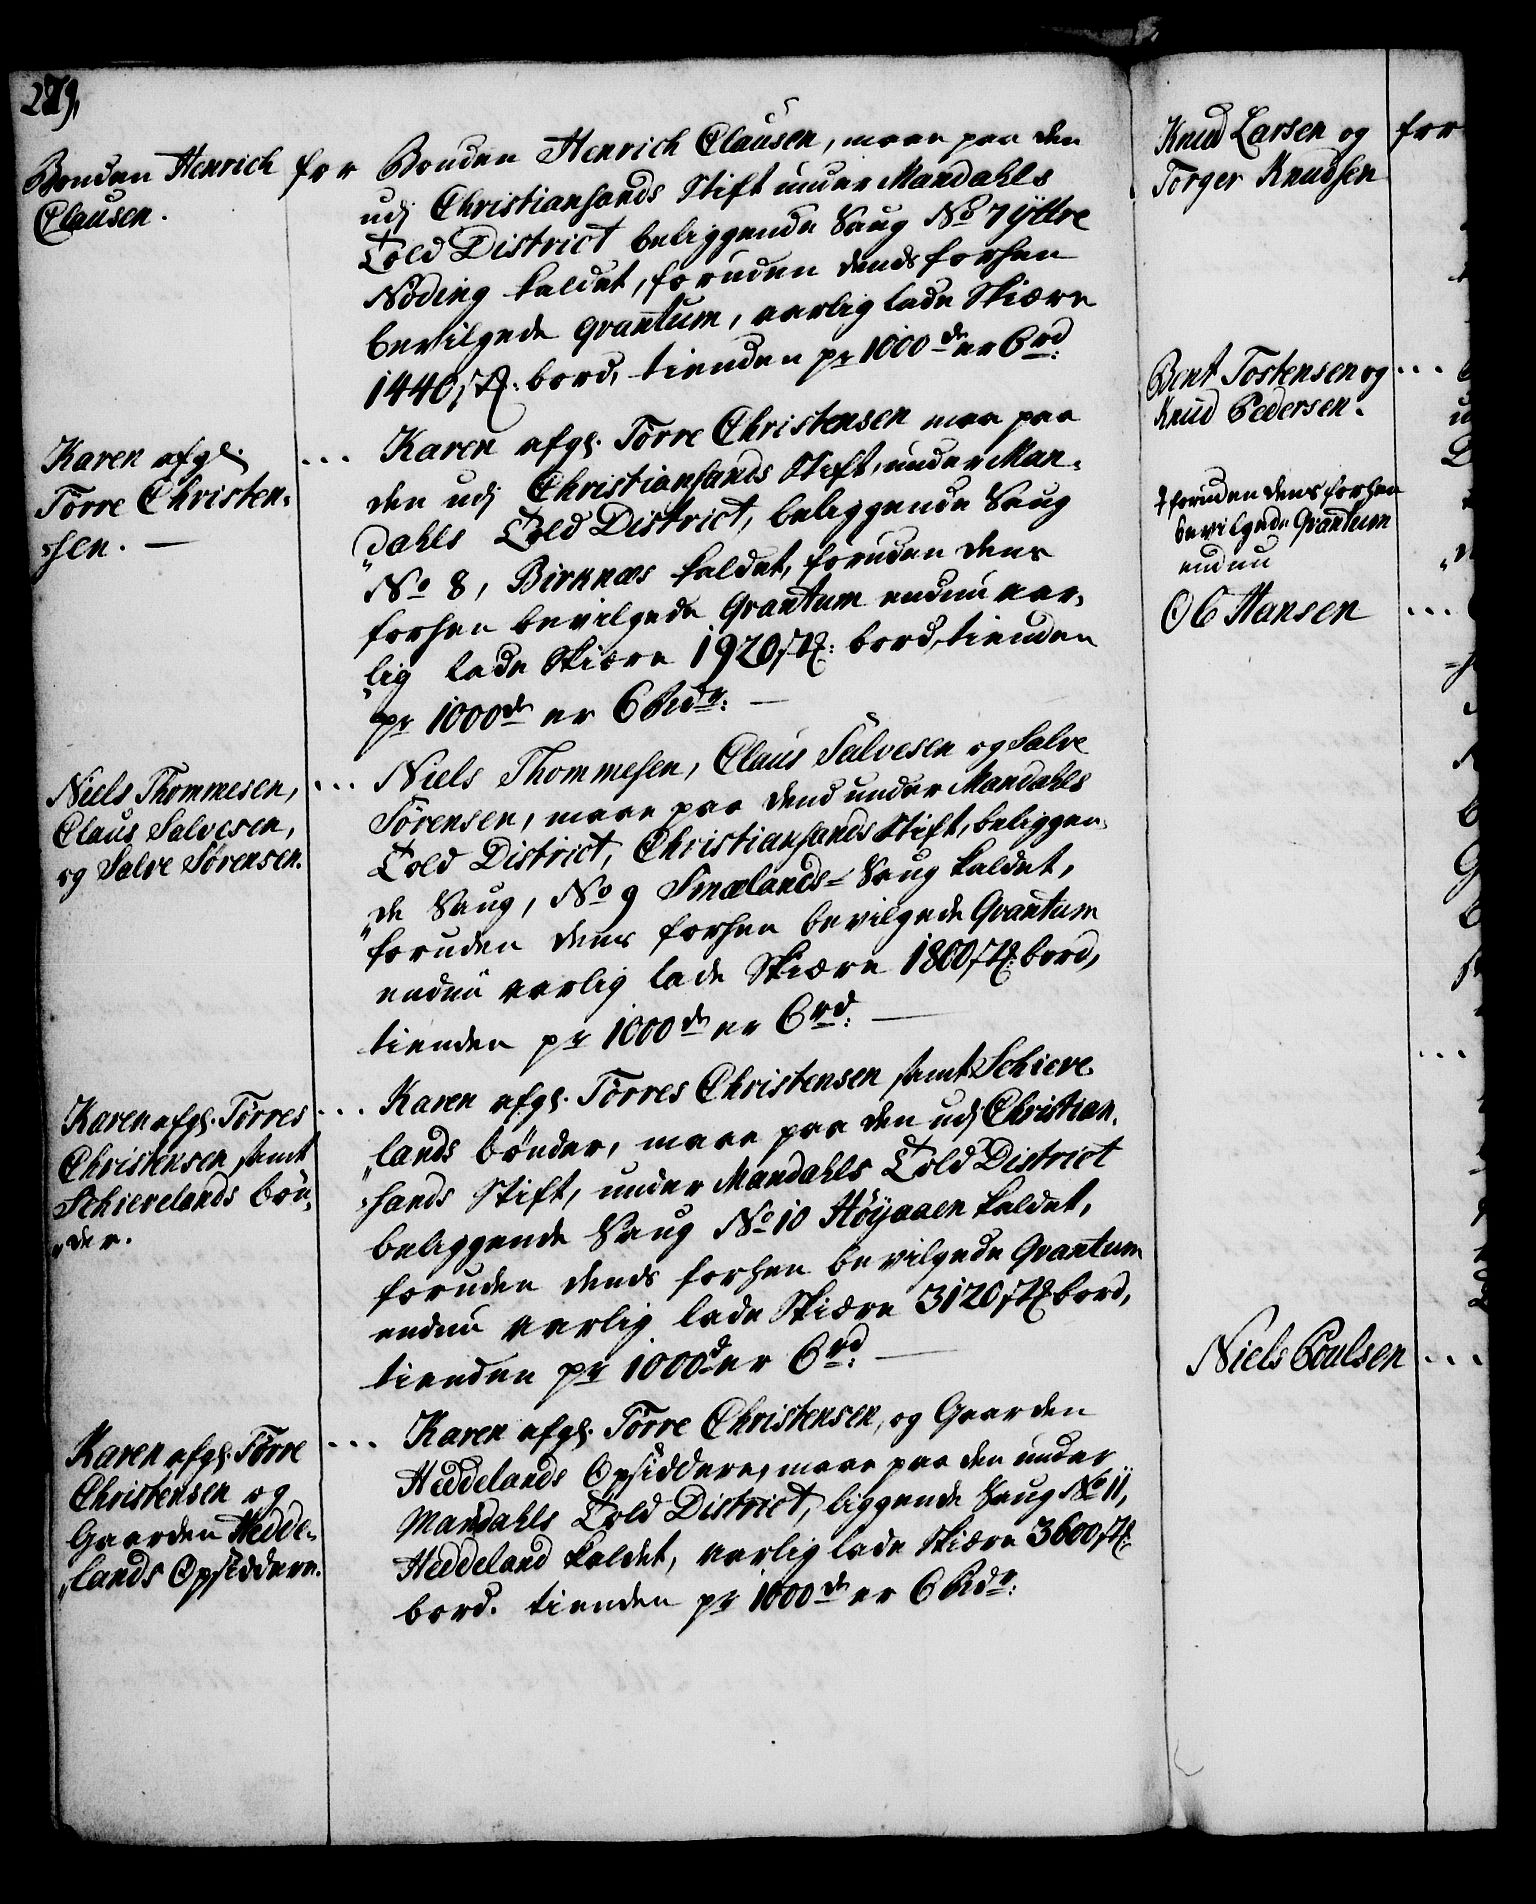 279.
Bonden Henrich for
Clausen.
Bonden Henrich Clausen, maae paa den
udj Christiansands Stift under Mandahls
Told District beliggende Saug No 7 Ÿttre
Nöding kaldet, foruden dends forhen
bevilgede Qvantum, aarlig lade Skiære
1440 st: bord, tienden pr 1000de er 6rd:
Karen afgl.
Törre Christen-
sen. —
...
Karen afgl. Törre Christensen maa paa
den udj Christiansands Stift, under Man-
dahls Told District, beliggende Saug
No 8, Birknæs kaldet, foruden dens
forhen bevilgede Qvantum endnu aar-
lig lade Skiære 1920 st: bord, tienden
pr 1000de er 6 Rdr: —
Niels Thommesen,
Claus Salvesen,
og Salve Sörensen.
...
Niels Thommesen, Claus Salvesen og Salve
Sörensen, maae paa dend under Mandahls
Told District, Christiansands Stift, beliggen-
de Saug, No 9 Smælands-Saug kaldet,
foruden dens forhen bevilgede Qvantum
endnu aarlig lade Skiære 1800 st: bord,
tienden pr 1000de er 6rd: —
Karen afgl. Törres
Christensen samt
Schierelands bön-
der.
...
Karen afgl. Törres Christensen samt Schiere-
lands bönder, maae paa den udj Christian-
sands Stift, under Mandahls Told District
beliggende Saug No 10 Höÿaaen kaldet,
foruden dends forhen bevilgede Qvantum
endnu aarlig lade Skiære 3120 st: bord,
tienden pr 1000de er 6rd: —
Karen afgl. Törre
Christensen og
Gaarden Hedde-
lands Opsiddere.
...
Karen afgl. Törre Christensen, og Gaarden
Heddelands Opsiddere, maae paa den under
Mandahls Told District, liggende Saug No 11,
Heddeland kaldet, aarlig lade Skiære 3600 st:
bord. tienden pr 1000de er 6 Rdr:
Knud Larsen og for
Torger Knudsen
Bent Tostensen og ...
Knud Pedersen.
† foruden dens forhen
bevilgede Qvantum
endnu
Ob Hansen ...
Niels Poulsen ...